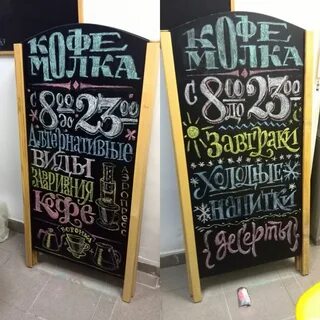 КОФЕ
МОЛКА
С 8:00 ДО 23:00
Альтернативные
ВИДЫ
ЗАВАРИВАНИЯ
КОФЕ
АЭРОПРЕСС
ВОРОНКА
КОФЕ
МОЛКА
С 8:00 ДО 23:00
Завтраки
ХОЛОДНЫЕ
НАПИТКИ
{десерты}